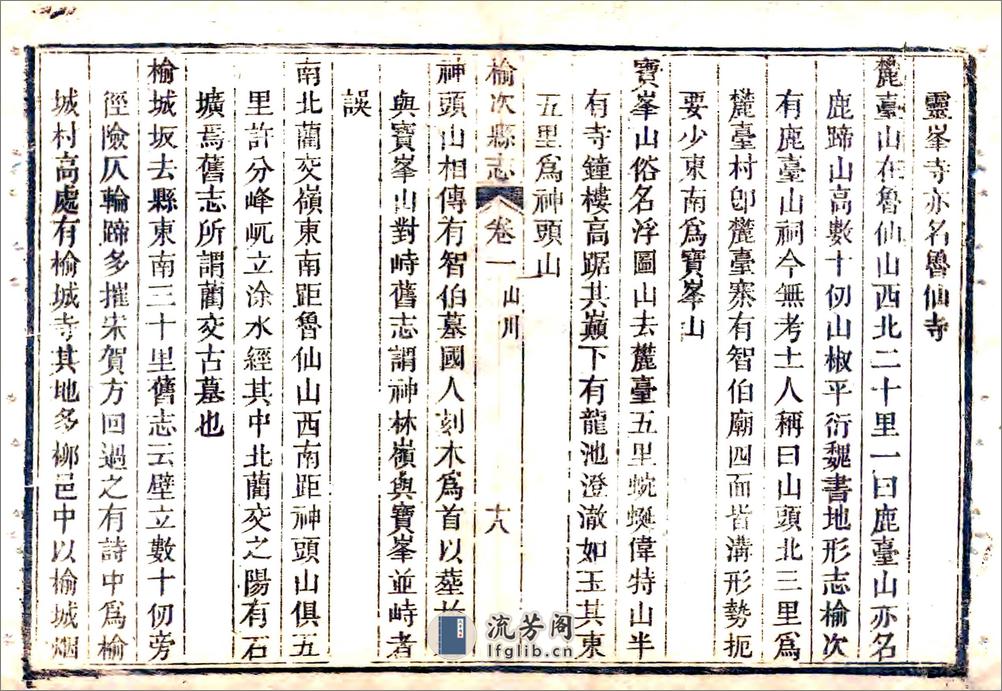 靈峯寺亦名魯仙寺
麓臺山在魯仙山西北二十里一曰鹿臺山亦名
鹿蹄山高數十仞山椒平衍魏書地形志榆次
有鹿臺山祠今無考土人稱曰山頭北三里爲
麓臺村卽麓臺寨有智伯廟四面皆溝形勢扼
要少東南爲寶峯山
寶峯山俗名浮圖山去麓臺五里蜿蜒偉特山半
有寺鐘樓高踞其巔下有龍池澄澈如玉其東
五里爲神頭山
榆次縣志 卷一 山川 十八
神頭山相傳有智伯墓國人刻木爲首以葬
與寶峯山對峙舊志謂神林嶺與寶峯並峙者
誤
南北藺交嶺東南距魯仙山西南距神頭山俱五
里許分峰屼立涂水經其中北藺交之陽有石
壙焉舊志所謂藺交古墓也
榆城坂去縣東南三十里舊志云壁立數十仞旁
徑險仄輪蹄多摧宋賀方回過之有詩中爲榆
城村高處有榆城寺其地多柳邑中以榆城烟
流芳阁
lfglib.cn